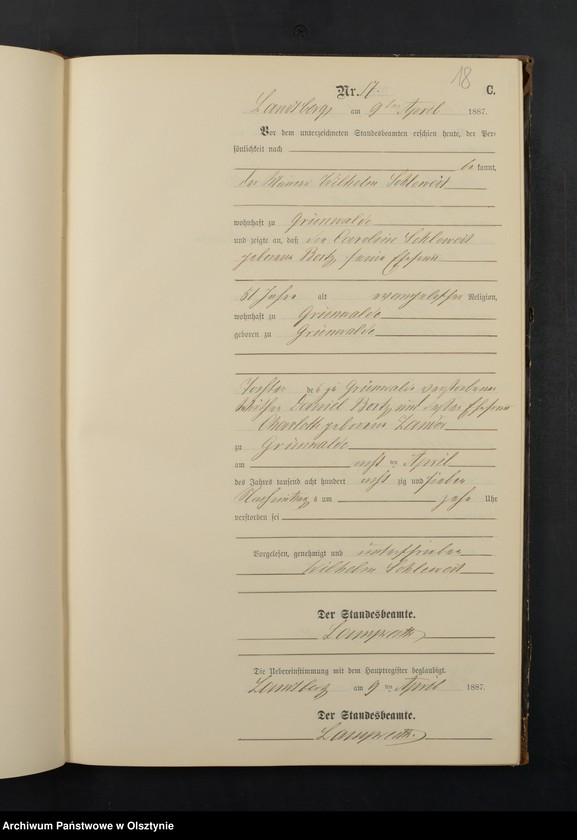 18
Nr. 17. C.
Landsberg am 9ten April 1887.
Vor dem unterzeichneten Standesbeamten erschien heute, der Per-
sönlichkeit nach
be kannt,
der Maurer Wilhelm Schleweit
wohnhaft zu Grünwalde
und zeigte an, daß die Caroline Schleweit
geborene Bortz, seine Ehefrau
51 Jahre alt evangelischer Religion,
wohnhaft zu Grünwalde
geboren zu Grünwalde
Tochter des zu Grünwalde verstorbenen
Daniel Bortz und Ehefrau
Charlotte geborene Zander
zu Grünwalde
am acht ten April
des Jahres tausend acht hundert acht zig und sieben
Nachmittag s um zehn Uhr
verstorben sei
Vorgelesen, genehmigt und unterschrieben
Wilhelm Schleweit
Der Standesbeamte.
Die Uebereinstimmung mit dem Hauptregister beglaubigt.
Landsberg am 9 ten April 1887.
Der Standesbeamte.
Archiwum Państwowe w Olsztynie